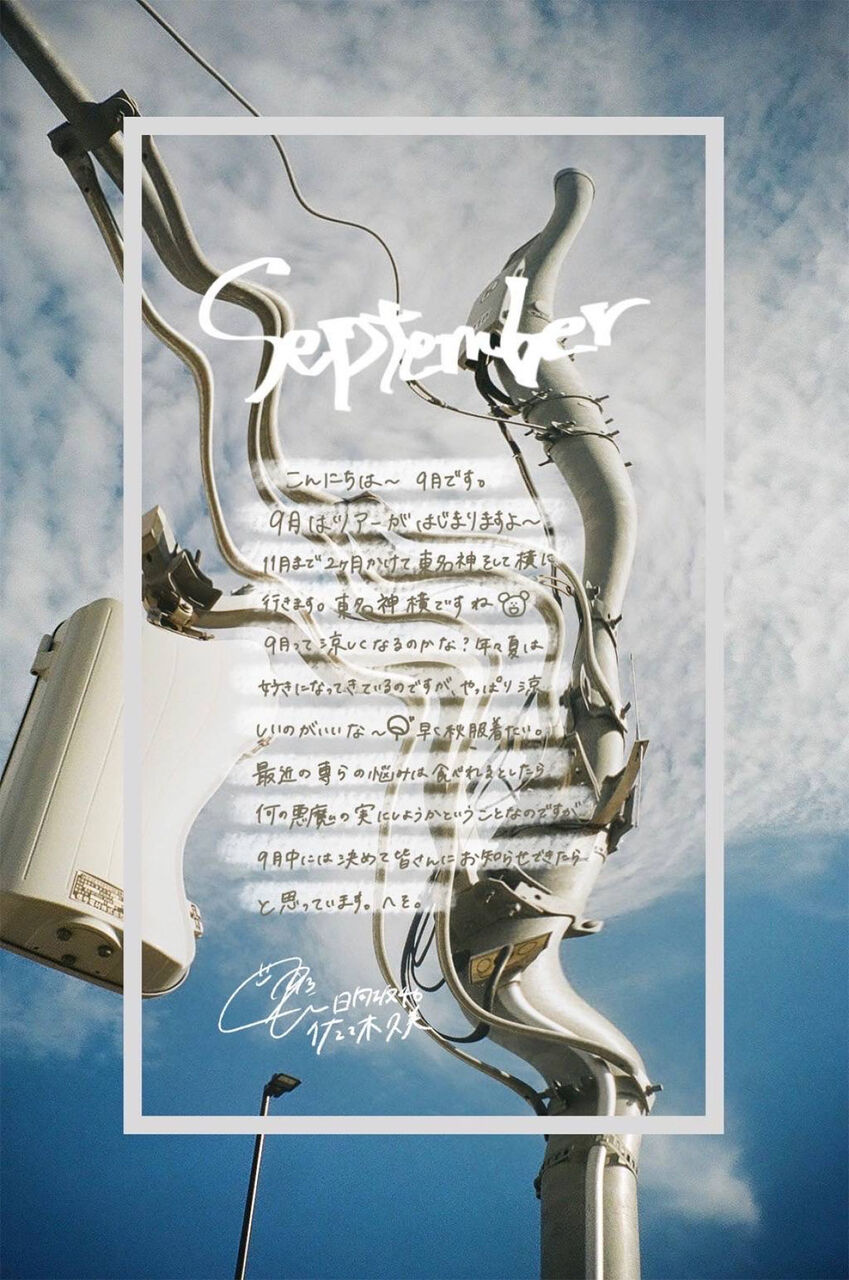 September
こんにちは〜 9月です。
9月はツアーがはじまりますよ〜
11月まで2ヶ月かけて、東名神そして横に
行きます。東名神横ですね
9月って涼しくなるのかな?年々夏は
好きになってきているのですが、やっぱり涼
しいのがいいな〜 早く秋服着たい。
最近の専らの悩みは食べれるとしたら
何の悪魔の実にしようかということなのですが
9月中には決めて皆さんにお知らせできたら
と思っています。へそ。
日向坂46
佐々木久美